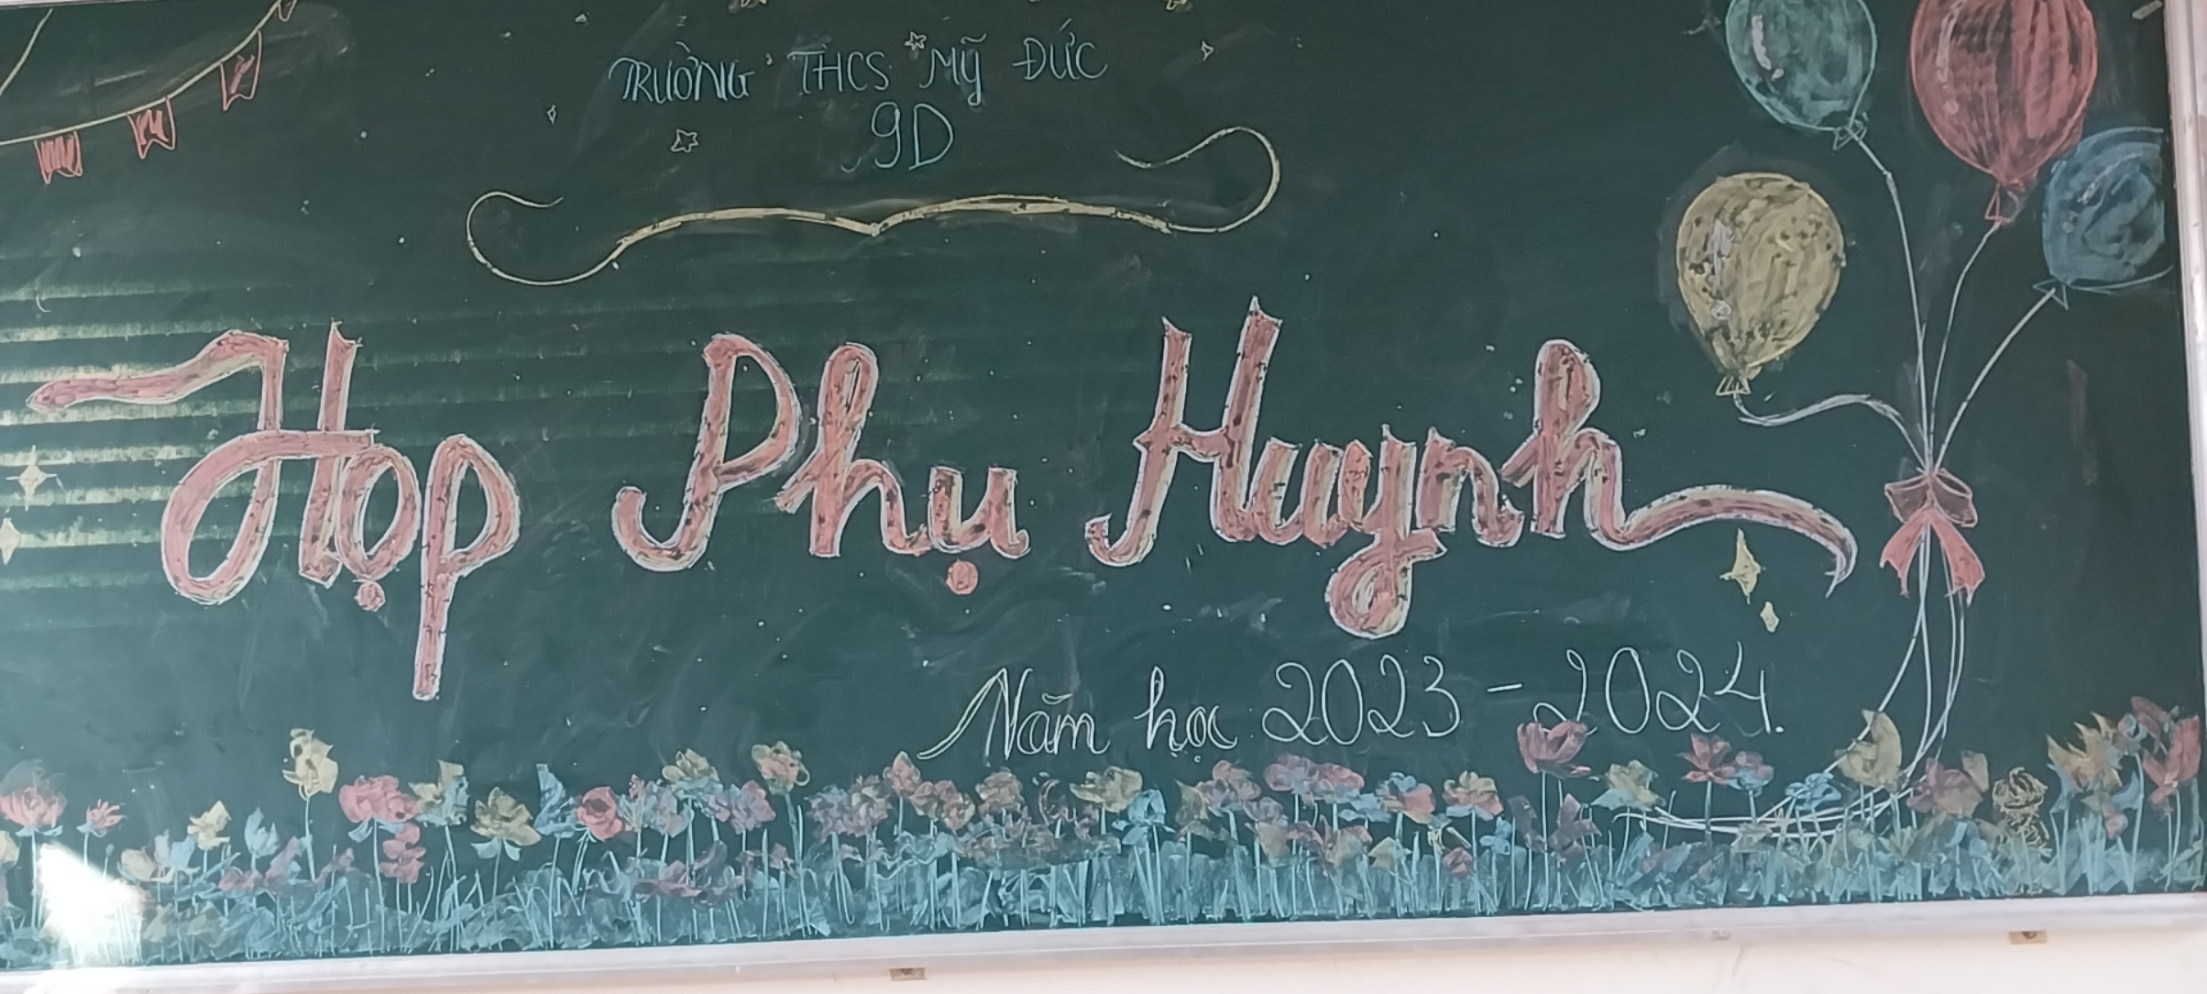 TRƯỜNG THCS MỸ ĐỨC
9D
Họp Phụ Huynh
Năm học 2023-2024.